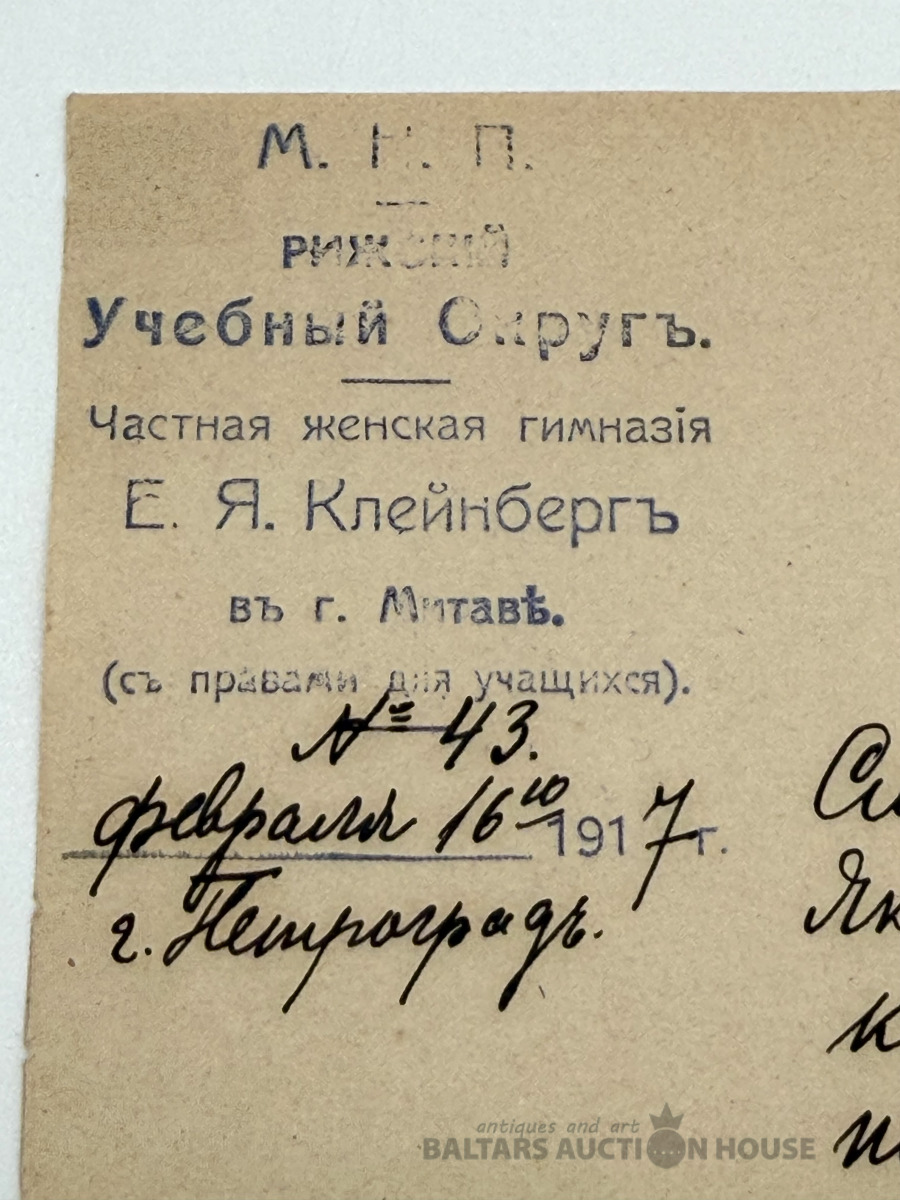 М. Н. П.
РИЖСКІЙ
Учебный Округъ.
Частная женская гимназія
Е. Я. Клейнбергъ
въ г. Митавѣ.
(съ правами для учащихся).
№ 43.
февраля 16го 1917 г.
г. Петроградъ.
Як
к
antiques and art
BALTARS AUCTION HOUSE